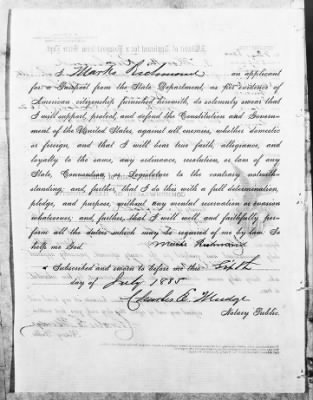 I Marks Richmond an applicant
for a Passport from the State Department, as per evidence of
American citizenship furnished herewith, do solemnly swear that
I will support, protect, and defend the Constitution and Govern-
ment of the United States, against all enemies, whether domestic
or foreign, and that I will bear true faith, allegiance, and
loyalty to the same, any ordinance, resolution, or law of any
State, Convention, or Legislature to the contrary notwith-
standing; and, further, that I do this with a full determination,
pledge, and purpose, without any mental reservation or evasion
whatsoever, and, further, that I will well and faithfully per-
form all the duties which may be required of me by law. So
help me God. Marks Richmond
Subscribed and sworn to before me this
day of July 1885
Charles E. Mudge
Notary Public.